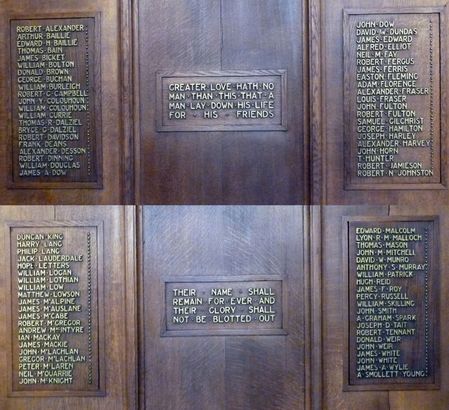 ROBERT·ALEXANDER
ARTHUR·BAILLIE
EDWARD·H·BAILLIE
THOMAS·BAIN
JAMES·BICKET
WILLIAM·BOLTON
DONALD·BROWN
GEORGE·BUCHAN
WILLIAM·BURLEIGH
ROBERT·G·CAMPBELL
JOHN·Y·COLQUHOUN
WILLIAM·COLQUHOUN
WILLIAM·CURRIE
THOMAS·R·DALZIEL
BRYCE·G·DALZIEL
ROBERT·DAVIDSON
FRANK·DEANS
ALEXANDER·DESSON
ROBERT·DINNING
WILLIAM·DOUGLAS
JAMES·A·DOW
GREATER·LOVE·HATH·NO
MAN·THAN·THIS·THAT·A
MAN·LAY·DOWN·HIS·LIFE
FOR · HIS · FRIENDS
JOHN·DOW
DAVID·W·DUNDAS
JAMES·EDWARD
ALFRED·ELLIOT
NEIL·M·FAY
ROBERT·FERGUS
JAMES·FERRIS
EASTON·FLEMING
ADAM·FLORENCE
ALEXANDER·FRASER
LOUIS·FRASER
JOHN·FULTON
ROBERT·FULTON
SAMUEL·GILCHRIST
GEORGE·HAMILTON
JOSEPH·HARLEY
ALEXANDER·HARVEY
JOHN·HORN
T·HUNTER
ROBERT·JAMIESON
ROBERT·N·JOHNSTON
DUNCAN·KING
HARRY·LANG
PHILIP·LANG
JACK·LAUDERDALE
LETTERS
WILLIAM·LOGAN
WILLIAM·LOTHIAN
WILLIAM·LOW
MATTHEW·LOWSON
JAMES·M'ALPINE
JAMES·M'AUSLANE
JAMES·M'CABE
ROBERT·M'GREGOR
ANDREW·M'INTYRE
IAN·MACKAY
JAMES·MACKIE
JOHN·M'LACHLAN
GREGOR·M'LACHLAN
PETER·M'LAREN
NEIL·M'QUARRIE
JOHN·M·KNIGHT
THEIR · NAME · SHALL
REMAIN·FOR·EVER·AND
THEIR·GLORY·SHALL
NOT·BE·BLOTTED·OUT
EDWARD·MALCOLM
LYON·R·M·MALLOCH
THOMAS·MASON
JOHN·M·MITCHELL
DAVID·W·MUNRO
ANTHONY·S·MURRAY
WILLIAM·PATRICK
HUGH·REID
JAMES·F·ROY
PERCY·RUSSELL
WILLIAM·SKILLING
JOHN·SMITH
A·GRAHAM·SPARK
JOSEPH·D·TAIT
ROBERT·TENNANT
DONALD·WEIR
JOHN·WEIR
JAMES·WHITE
JOHN·WHITE
JAMES·A·WYLIE
A·SMOLLETT·YOUNG